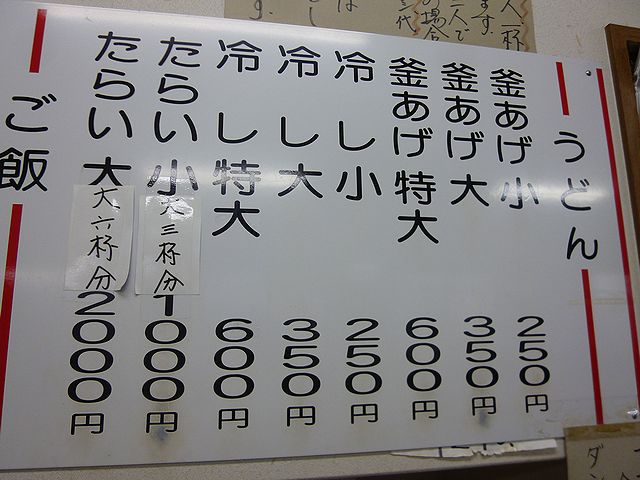 うどん
釜あげ小 250円
釜あげ大 350円
釜あげ特大 600円
冷し小 250円
冷し大 350円
冷し特大 600円
たらい小 1000円
大三杯分
たらい大 2000円
大六杯分
ご飯
人一杯
ます。
二人で
の場合